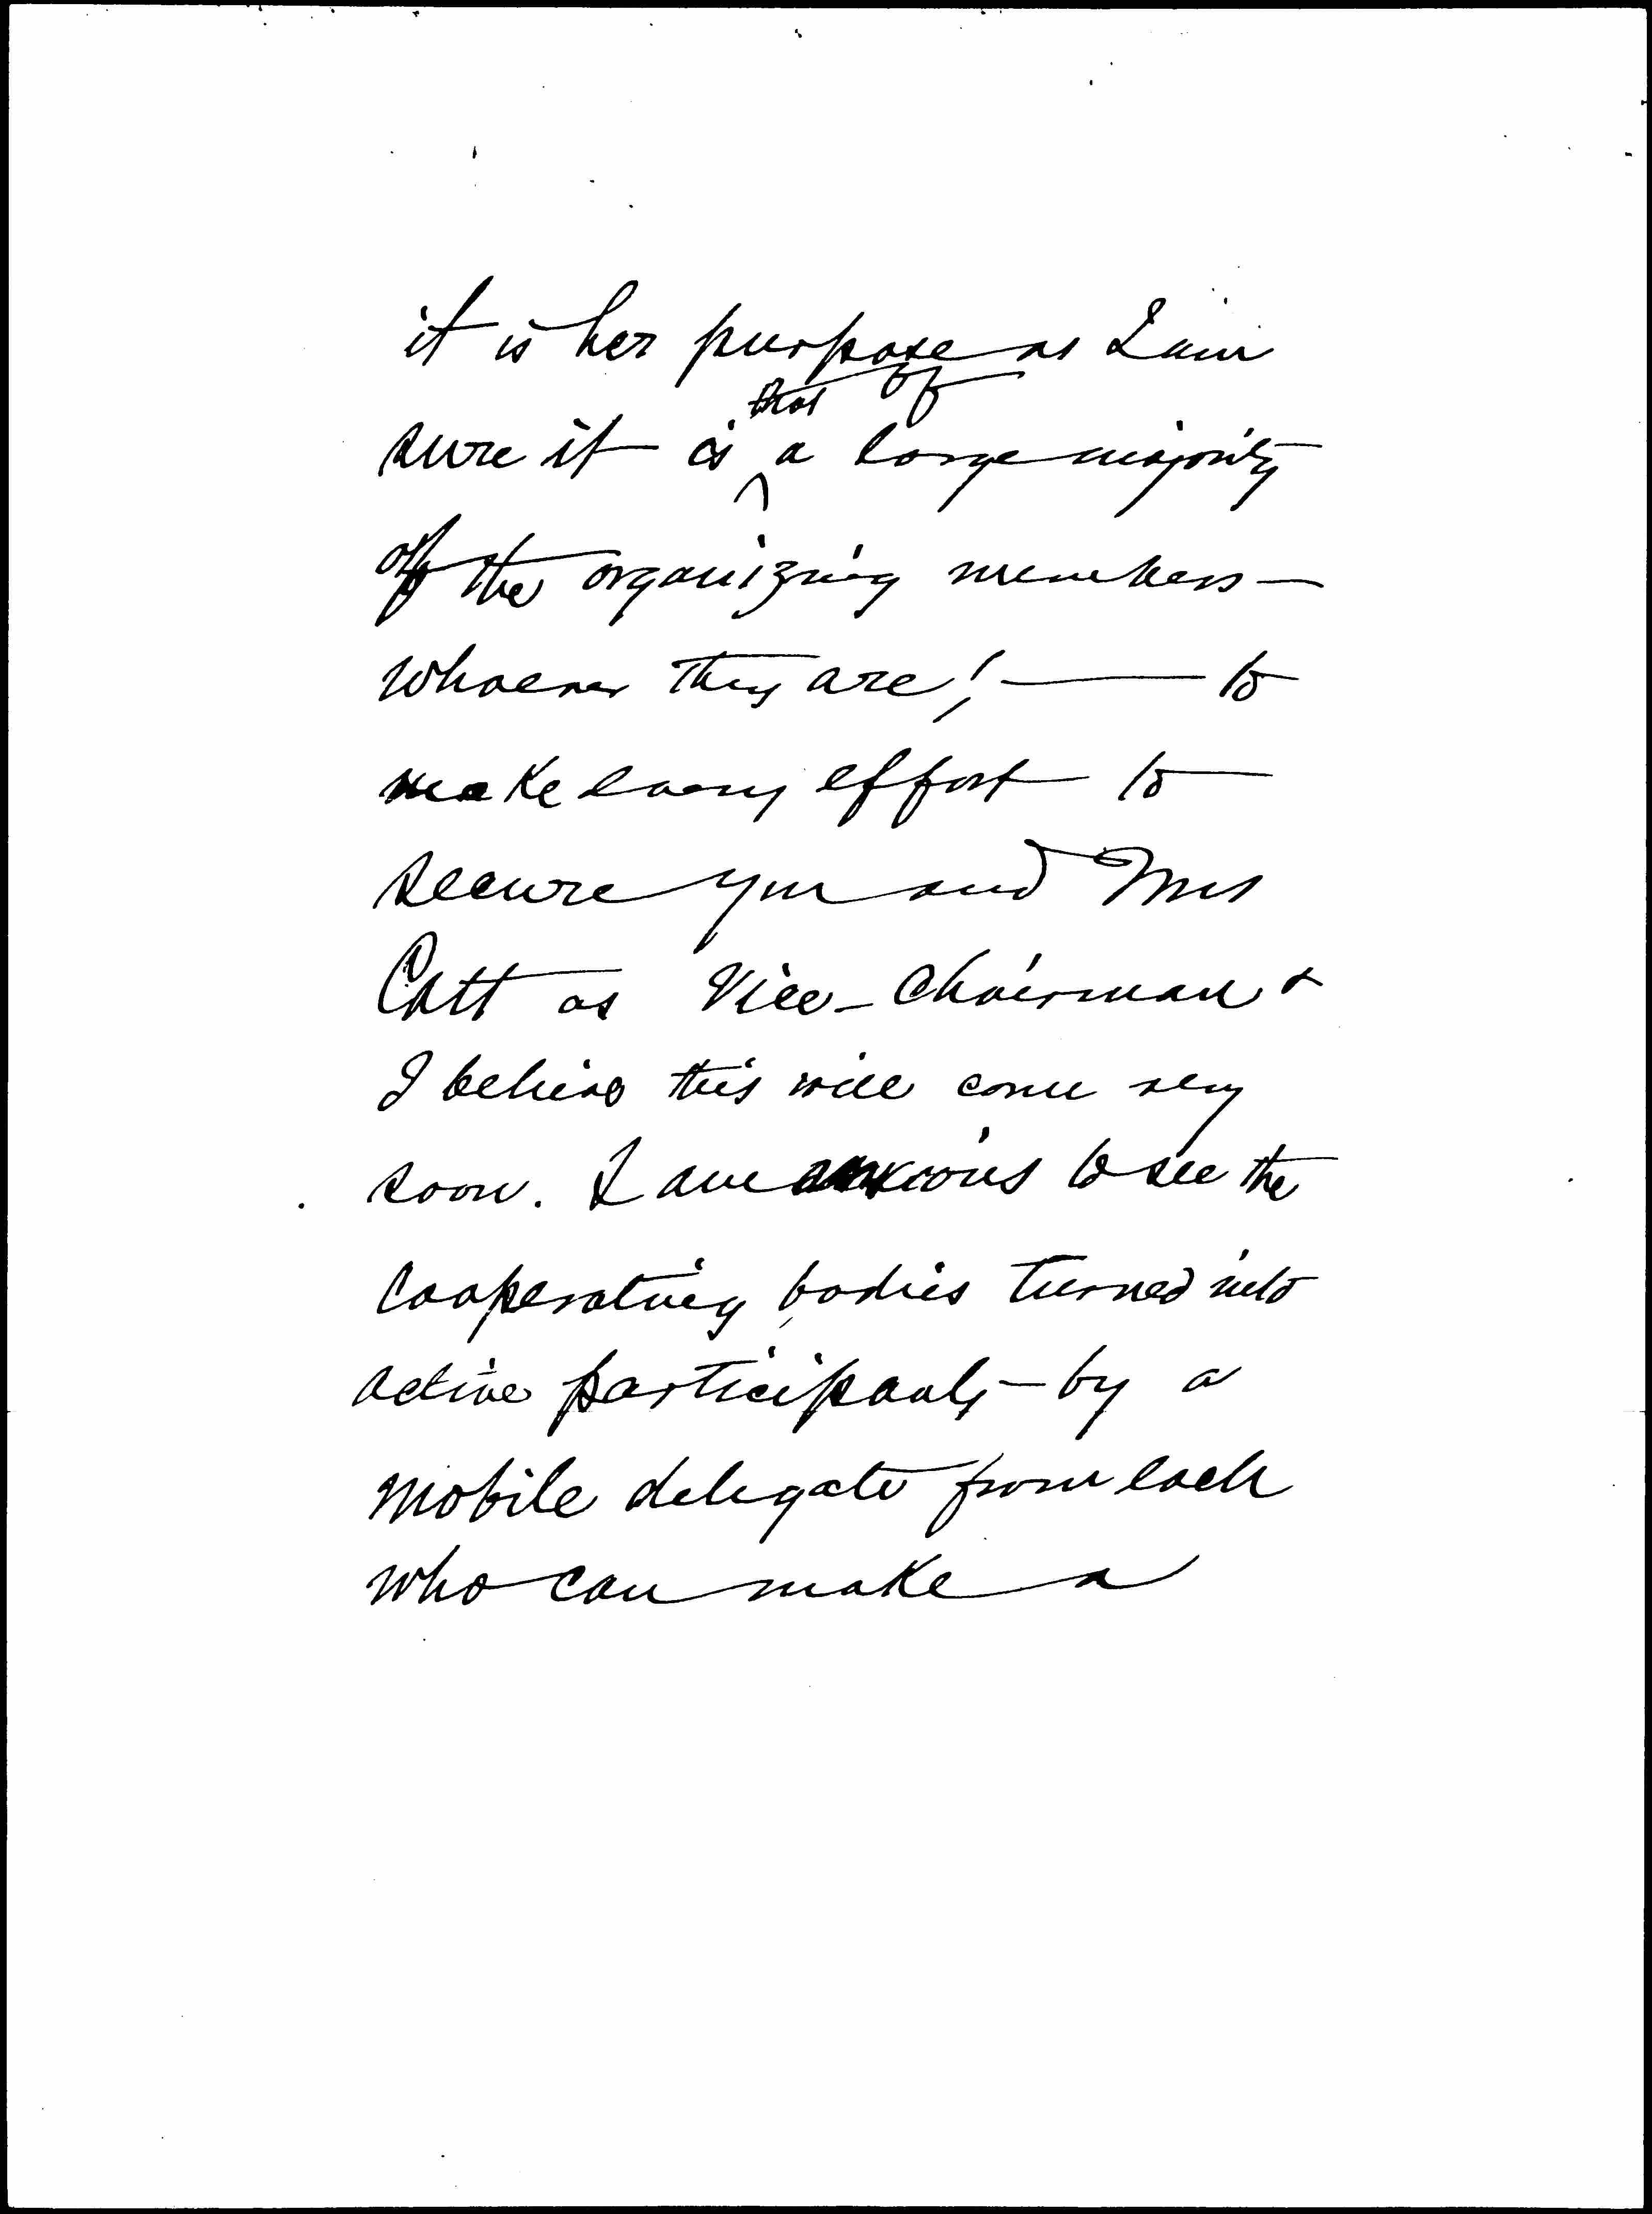 it is her purpose as I am
that of
sure it is a large majority
of the organizing members —
whoever they are! — to
make every effort to
secure you and Mrs
Catt as Vice-Chairman &
I believe this will come very
soon. I am anxious to see the
cooperating bodies turned into
active participants — by a
mobile delegate from each
who can make a